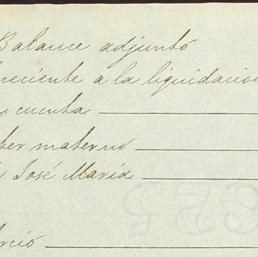 Balance adjunto
neciente a la liquidacion
cuenta
ber materno
José María
rció